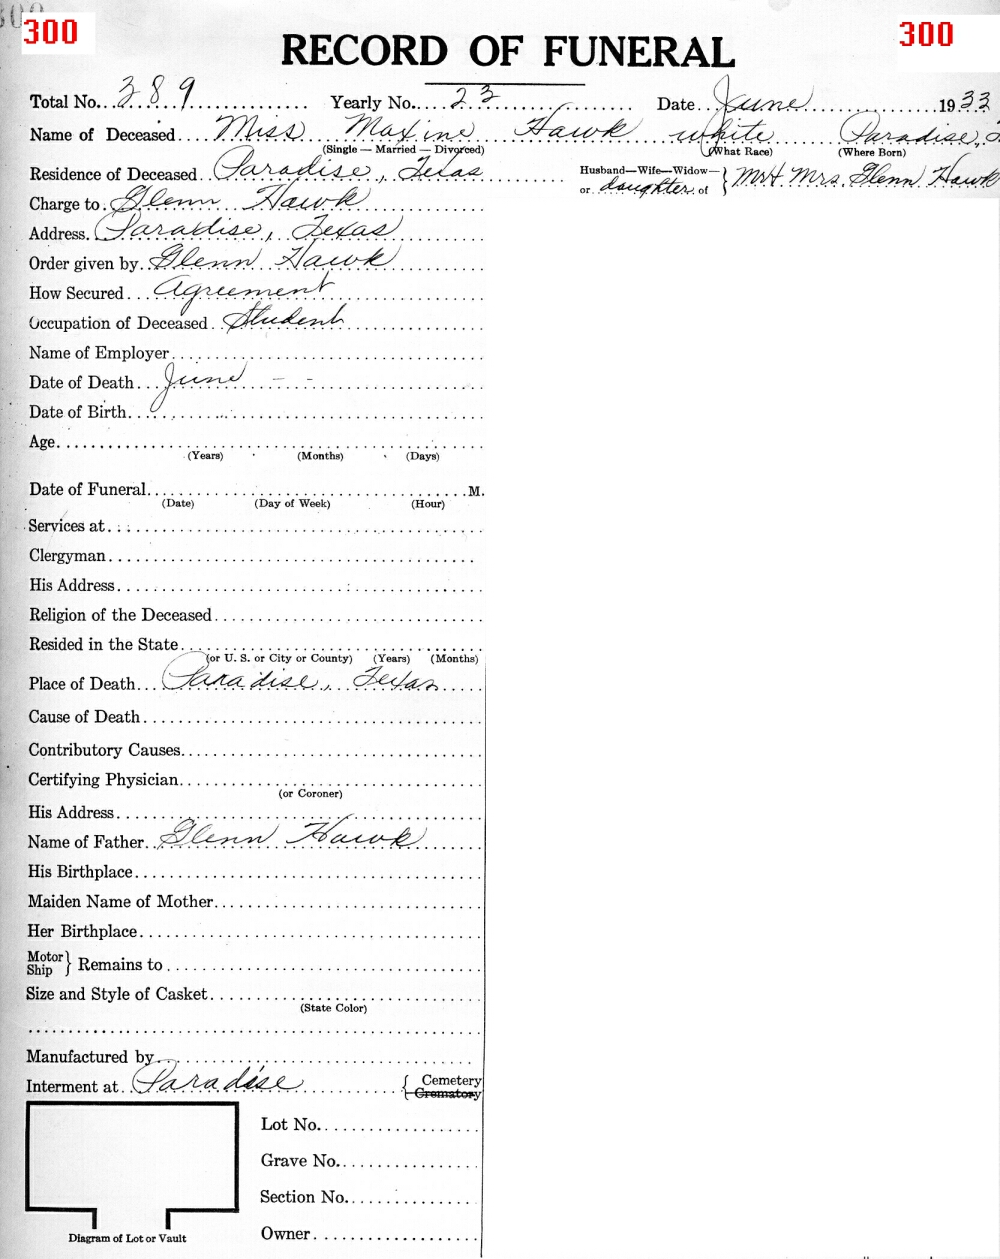 300 300
RECORD OF FUNERAL
Total No. 389 Yearly No. 23 Date June 1933
Name of Deceased Miss Maxine Hawk white Paradise,
(Single — Married — Divorced) (What Race) (Where Born)
Residence of Deceased Paradise, Texas Husband—Wife—Widow— or daughter of } Mr & Mrs. Glenn Hawk
Charge to Glenn Hawk
Address Paradise, Texas
Order given by Glenn Hawk
How Secured Agreement
Occupation of Deceased Student
Name of Employer
Date of Death June - -
Date of Birth
Age
(Years) (Months) (Days)
Date of Funeral M.
(Date) (Day of Week) (Hour)
Services at
Clergyman
His Address
Religion of the Deceased
Resided in the State
(or U. S. or City or County) (Years) (Months)
Place of Death Paradise, Texas
Cause of Death
Contributory Causes
Certifying Physician
(or Coroner)
His Address
Name of Father Glenn Hawk
His Birthplace
Maiden Name of Mother
Her Birthplace
Motor Ship } Remains to
Size and Style of Casket
(State Color)
Manufactured by
Interment at Paradise { Cemetery
Crematory
Lot No.
Grave No.
Section No.
Diagram of Lot or Vault
Owner